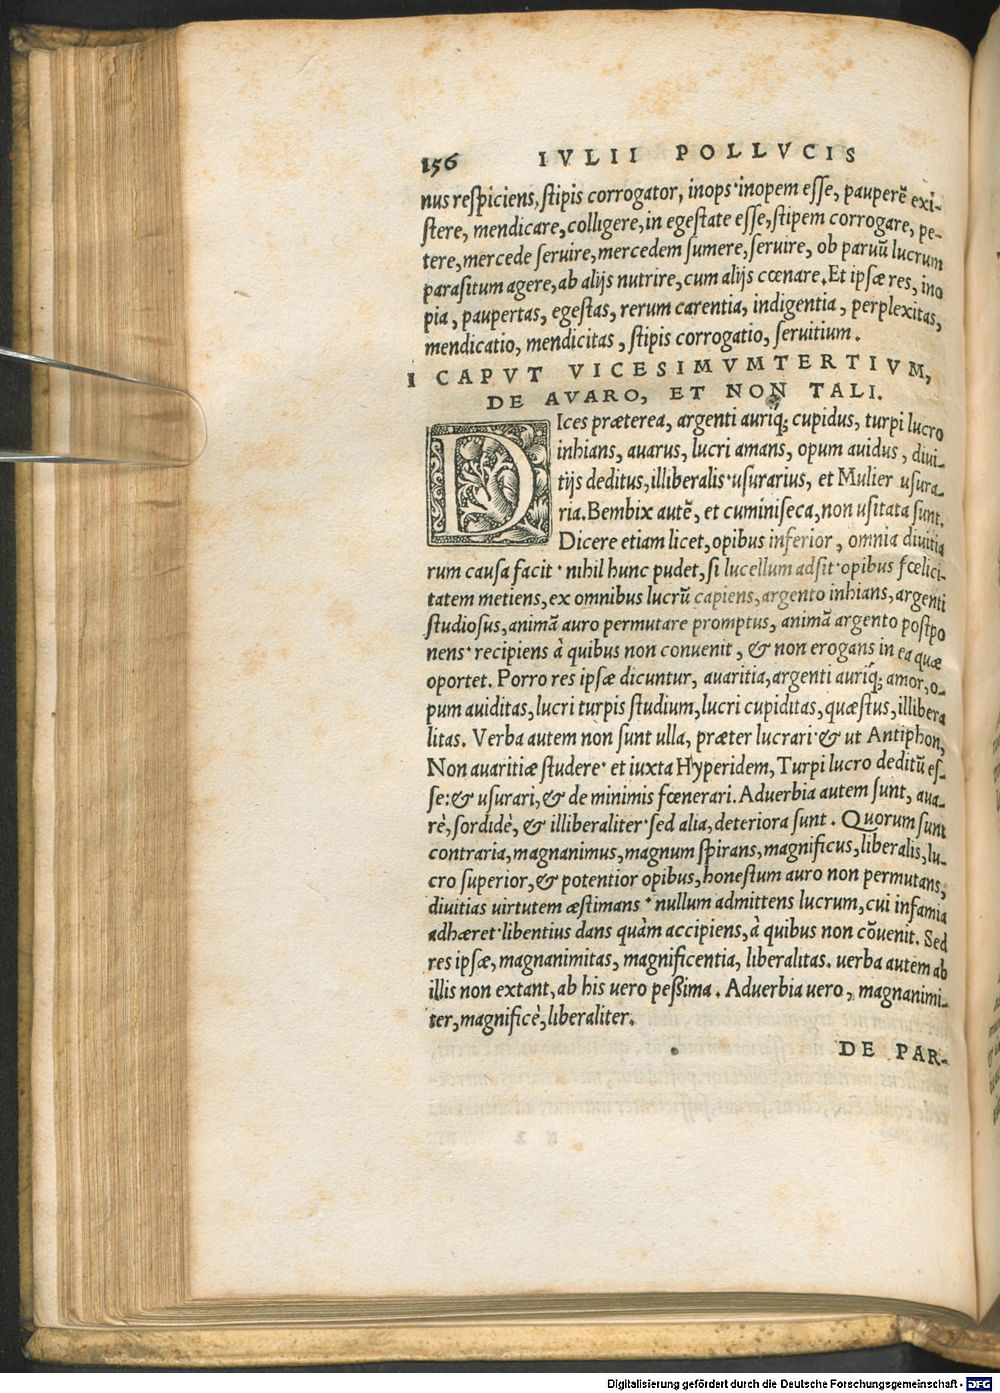 156 IVLII POLLVCIS
nus respiciens, stipis corrogator, inops·inopem esse, pauperẽ exi-
stere, mendicare, colligere, in egestate esse, stipem corrogare, pe-
tere, mercede seruire, mercedem sumere, seruire, ob paruũ lucrum
parasitum agere, ab alijs nutrire, cum alijs cœnare. Et ipsæ res, ino
pia, paupertas, egestas, rerum carentia, indigentia, perplexitas,
mendicatio, mendicitas, stipis corrogatio, seruitium.
I CAPVT VICESIMVMTERTIVM,
DE AVARO, ET NON TALI.
DIces præterea, argenti auriq́; cupidus, turpi lucro
inhians, auarus, lucri amans, opum auidus, diui-
tijs deditus, illiberalis·usurarius, et Mulier usura-
ria. Bembix autẽ, et cuminiseca, non usitata sunt.
Dicere etiam licet, opibus inferior, omnia diuitia
rum causa facit·nihil hunc pudet, si lucellum adsit·opibus fœlici-
tatem metiens, ex omnibus lucrũ capiens, argento inhians, argenti
studiosus, animã auro permutare promptus, animã argento postpo
nens·recipiens à quibus non conuenit, & non erogans in ea quæ
oportet. Porro res ipsæ dicuntur, auaritia, argenti auriq́; amor, o-
pum auiditas, lucri turpis studium, lucri cupiditas, quæstus, illibera
litas. Verba autem non sunt ulla, præter lucrari·& ut Antiphon,
Non auaritiæ studere· et iuxta Hyperidem, Turpi lucro deditũ es-
se: & usurari, & de minimis fœnerari. Aduerbia autem sunt, aua-
rè, sordidè, & illiberaliter·sed alia, deteriora sunt. Quorum sunt
contraria, magnanimus, magnum spirans, magnificus, liberalis, lu-
cro superior, & potentior opibus, honestum auro non permutans,
diuitias uirtutem æstimans·nullum admittens lucrum, cui infamia
adhæret·libentius dans quàm accipiens, à quibus non cõuenit. Sed
res ipsæ, magnanimitas, magnificentia, liberalitas. uerba autem ab
illis non extant, ab his uero peßima. Aduerbia uero, magnanimi-
ter, magnificè, liberaliter.
DE PAR-
Digitalisierung gefördert durch die Deutsche Forschungsgemeinschaft - DFG